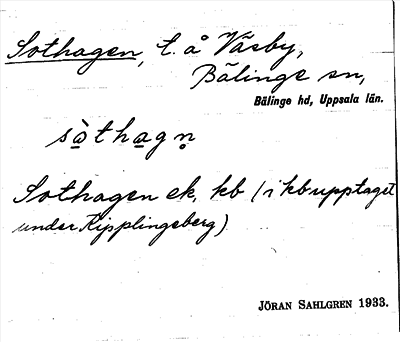 Sothagen, t. å Väsby,
Bälinge sn,
Bälinge hd, Uppsala län.
sòthagn̥
Sothagen ek, kb (i kb upptaget
under Kipplingeberg)
JÖRAN SAHLGREN 1933.